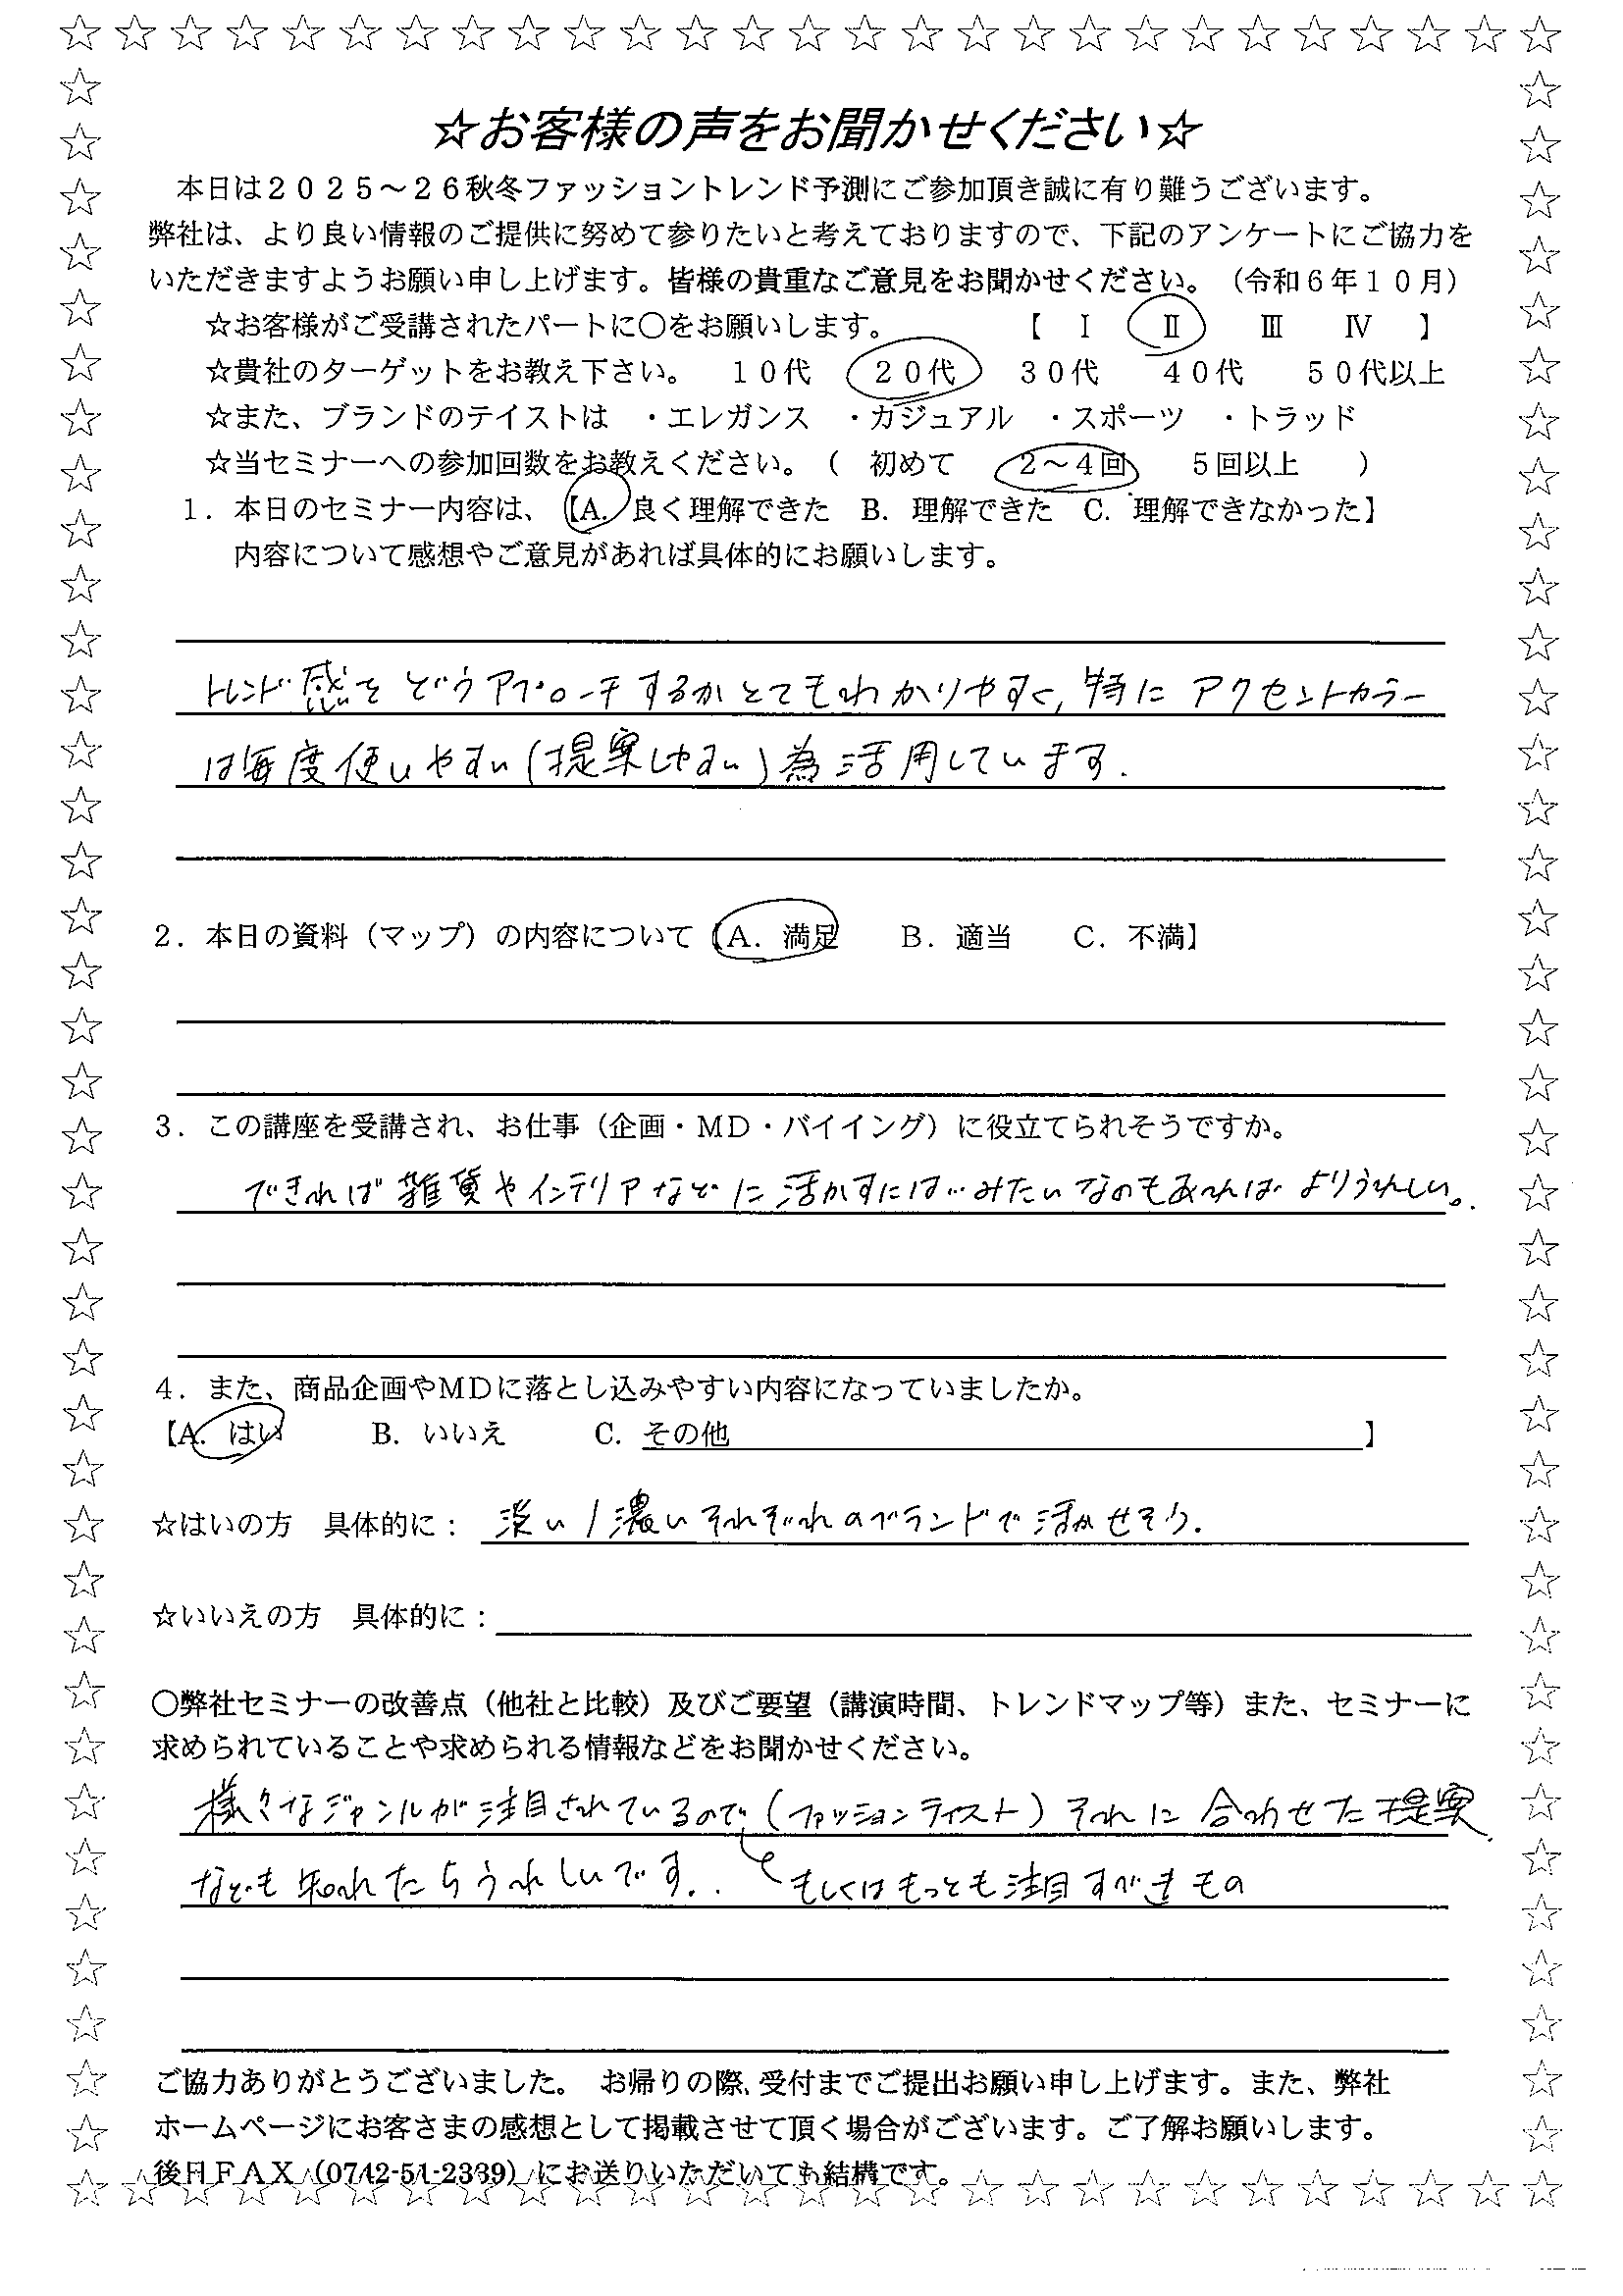 ☆お客様の声をお聞かせください☆
本日は２０２５～２６秋冬ファッショントレンド予測にご参加頂き誠に有り難うございます。
弊社は、より良い情報のご提供に努めて参りたいと考えておりますので、下記のアンケートにご協力を
いただきますようお願い申し上げます。皆様の貴重なご意見をお聞かせください。（令和６年１０月）
☆お客様がご受講されたパートに〇をお願いします。　【　Ⅰ　Ⅱ　Ⅲ　Ⅳ　】
☆貴社のターゲットをお教え下さい。　１０代　２０代　３０代　４０代　５０代以上
☆また、ブランドのテイストは　・エレガンス　・カジュアル　・スポーツ　・トラッド
☆当セミナーへの参加回数をお教えください。（　初めて　２～４回　５回以上　）
１．本日のセミナー内容は、【A. 良く理解できた　B. 理解できた　C. 理解できなかった】
内容について感想やご意見があれば具体的にお願いします。
トレンド感をどうアプローチするかとてもわかりやすく, 特に アクセントカラー
は毎度使いやすい(提案しやすい)為活用しています.
２．本日の資料（マップ）の内容について【A．満足　B．適当　C．不満】
３．この講座を受講され、お仕事（企画・MD・バイイング）に役立てられそうですか。
できれば雑貨やインテリアなどに活かすには…みたいなのもあればよりうれしい。
４．また、商品企画やMDに落とし込みやすい内容になっていましたか。
【A. はい　B. いいえ　C. その他　】
☆はいの方　具体的に： 淡い/濃いそれぞれのブランドで活かせそう.
☆いいえの方　具体的に：
〇弊社セミナーの改善点（他社と比較）及びご要望（講演時間、トレンドマップ等）また、セミナーに
求められていることや求められる情報などをお聞かせください。
様々なジャンルが注目されているので, (ファッションテイスト) それに合わせた提案
なども知れたらうれしいです. もしくはもっとも注目すべきもの
ご協力ありがとうございました。　お帰りの際、受付までご提出お願い申し上げます。また、弊社
ホームページにお客さまの感想として掲載させて頂く場合がございます。ご了解お願いします。
後日ＦＡＸ（0742-51-2339）にお送りいただいても結構です。